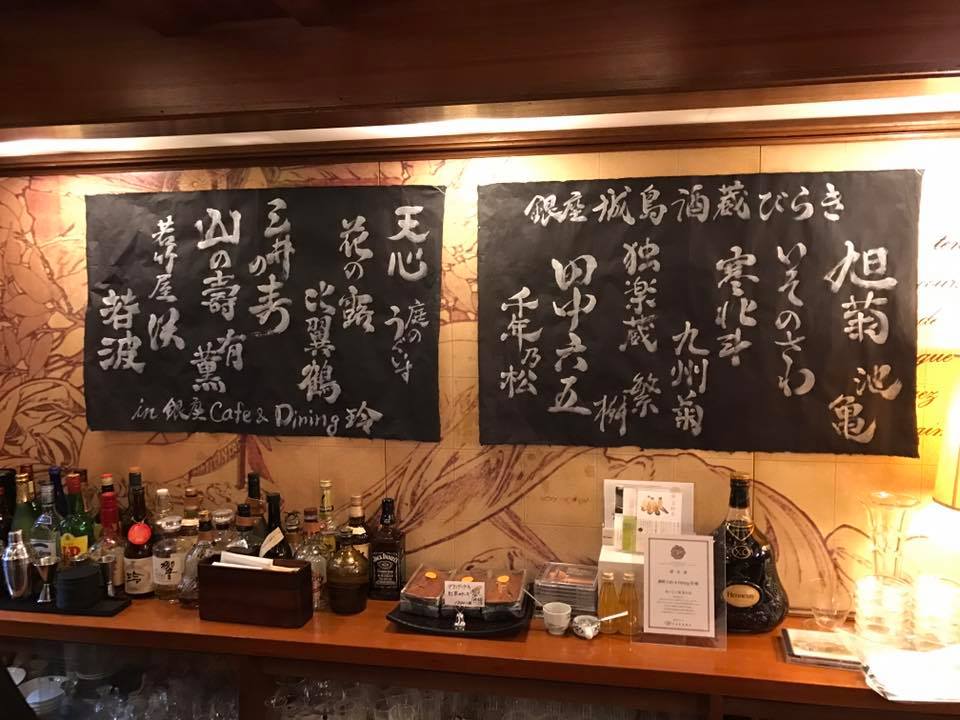 銀座 城島酒蔵びらき
旭菊
池亀
いそのさわ
寒北斗
九州菊
独楽蔵
繁桝
田中六五
千年乃松
天心
庭のうぐいす
花の露
比翼鶴
三井の寿
山の壽
有薫
若竹屋
渓
若波
in 銀座 Cafe & Dining 玲
JACK DANIEL'S
Hennessy
XO
響